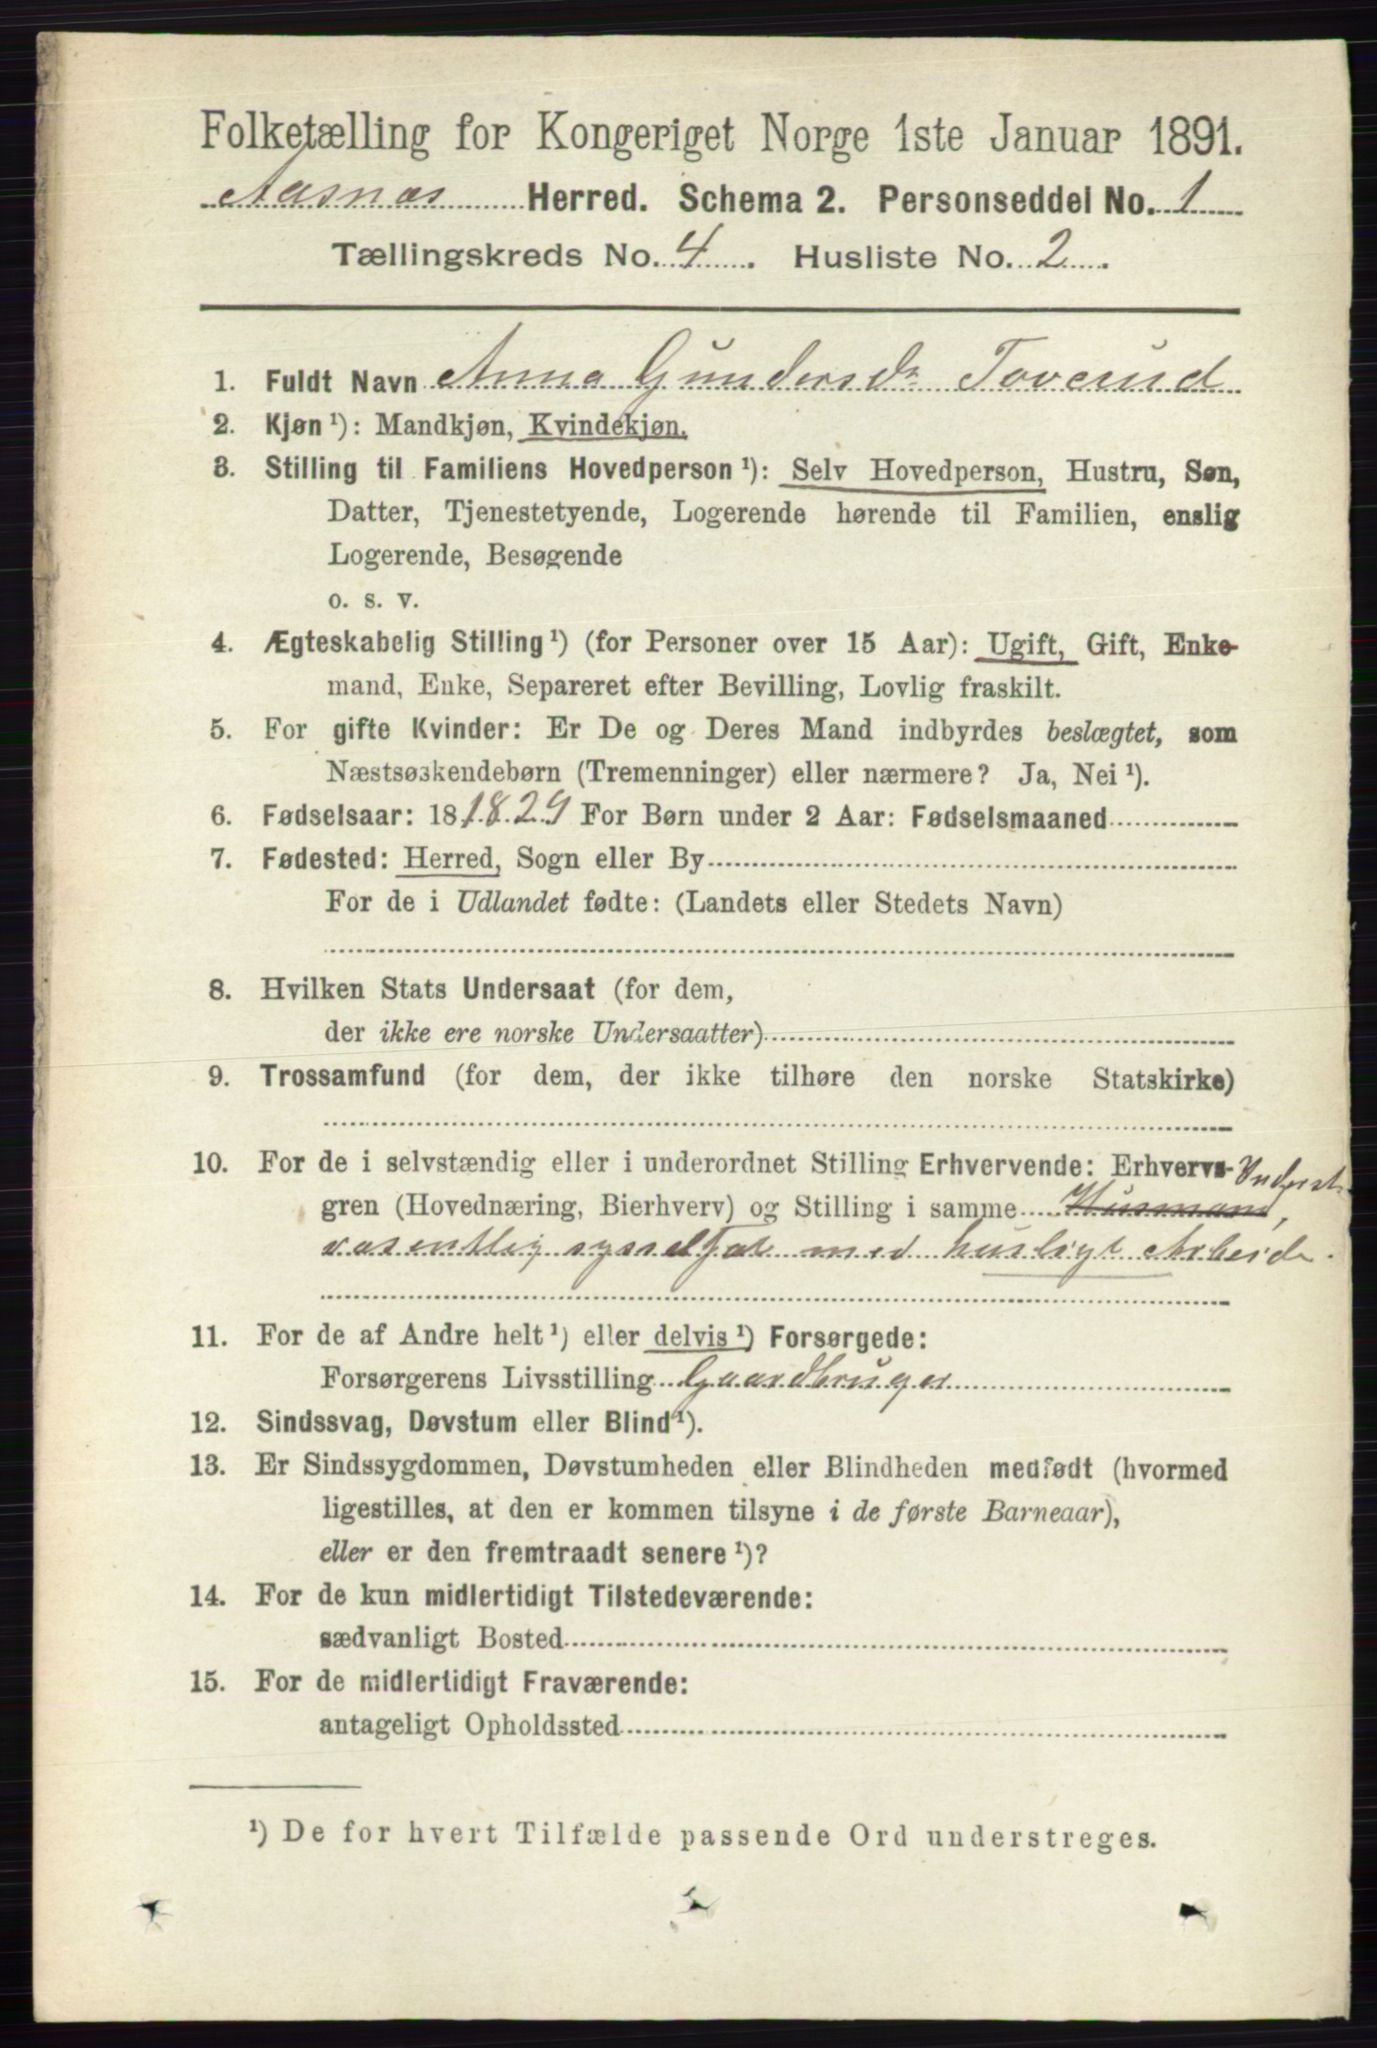 Folketælling for Kongeriget Norge 1ste Januar 1891.
Aasnæs Herred. Schema 2. Personseddel No. 1
Tællingskreds No. 4. Husliste No. 2.
1. Fuldt Navn Anna Gundersdr Toverud
2. Kjøn ¹): Mandkjøn, Kvindekjøn.
3. Stilling til Familiens Hovedperson ¹): Selv Hovedperson, Hustru, Søn,
Datter, Tjenestetyende, Logerende hørende til Familien, enslig
Logerende, Besøgende
o. s. v.
4. Ægteskabelig Stilling ¹) (for Personer over 15 Aar): Ugift, Gift, Enke-
mand, Enke, Separeret efter Bevilling, Lovlig fraskilt.
5. For gifte Kvinder: Er De og Deres Mand indbyrdes beslægtet, som
Næstsøskendebørn (Tremenninger) eller nærmere? Ja, Nei ¹).
6. Fødselsaar: 18 1829 For Børn under 2 Aar: Fødselsmaaned
7. Fødested: Herred, Sogn eller By
For de i Udlandet fødte: (Landets eller Stedets Navn)
8. Hvilken Stats Undersaat (for dem,
der ikke ere norske Undersaatter)
9. Trossamfund (for dem, der ikke tilhøre den norske Statskirke)
10. For de i selvstændig eller i underordnet Stilling Erhvervende: Erhvervs-
gren (Hovednæring, Bierhverv) og Stilling i samme Husmand, Inderst
væsentlig sysselsat med husligt Arbeide.
11. For de af Andre helt ¹) eller delvis ¹) Forsørgede:
Forsørgerens Livsstilling Gaardbruger
12. Sindssvag, Døvstum eller Blind ¹).
13. Er Sindssygdommen, Døvstumheden eller Blindheden medfødt (hvormed
ligestilles, at den er kommen tilsyne i de første Barneaar),
eller er den fremtraadt senere ¹)?
14. For de kun midlertidigt Tilstedeværende:
sædvanligt Bosted
15. For de midlertidigt Fraværende:
antageligt Opholdssted
¹) De for hvert Tilfælde passende Ord understreges.